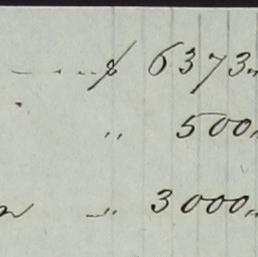 $ 6373 „
„ 500 „
„ 3000 „